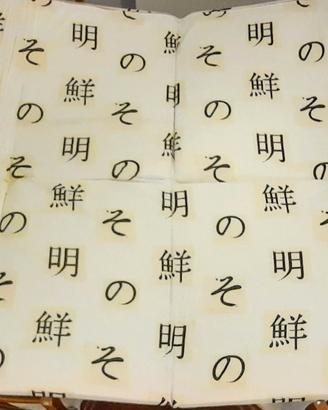 そ 明 の 鮮 そ 明 の
鮮 明 鮮
の そ の そ
明 鮮 明
そ の そ の
鮮 明 鮮
の そ の
明 鮮 明
の そ
鮮 明 鮮
そ の